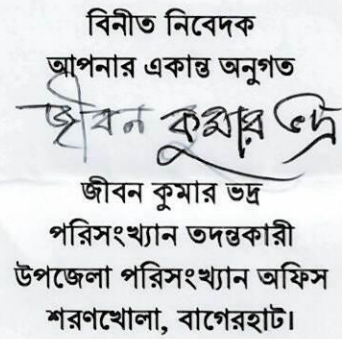 বিনীত নিবেদক
আপনার একান্ত অনুগত
জীবন কুমার ভদ্র
জীবন কুমার ভদ্র
পরিসংখ্যান তদন্তকারী
উপজেলা পরিসংখ্যান অফিস
শরণখোলা, বাগেরহাট।